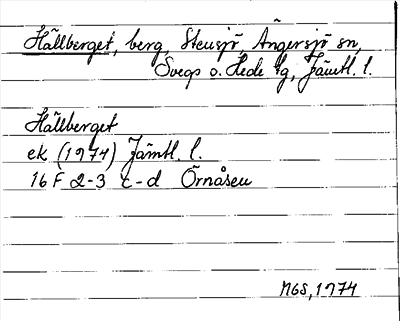 Hällberget, berg, Stensjö, Ängersjö sn,
Svegs o. Hede tg, Jämtl. l.
Hällberget
ek (1974) Jämtl. l.
16 F 2-3 c-d Örnåsen
MGS, 1974